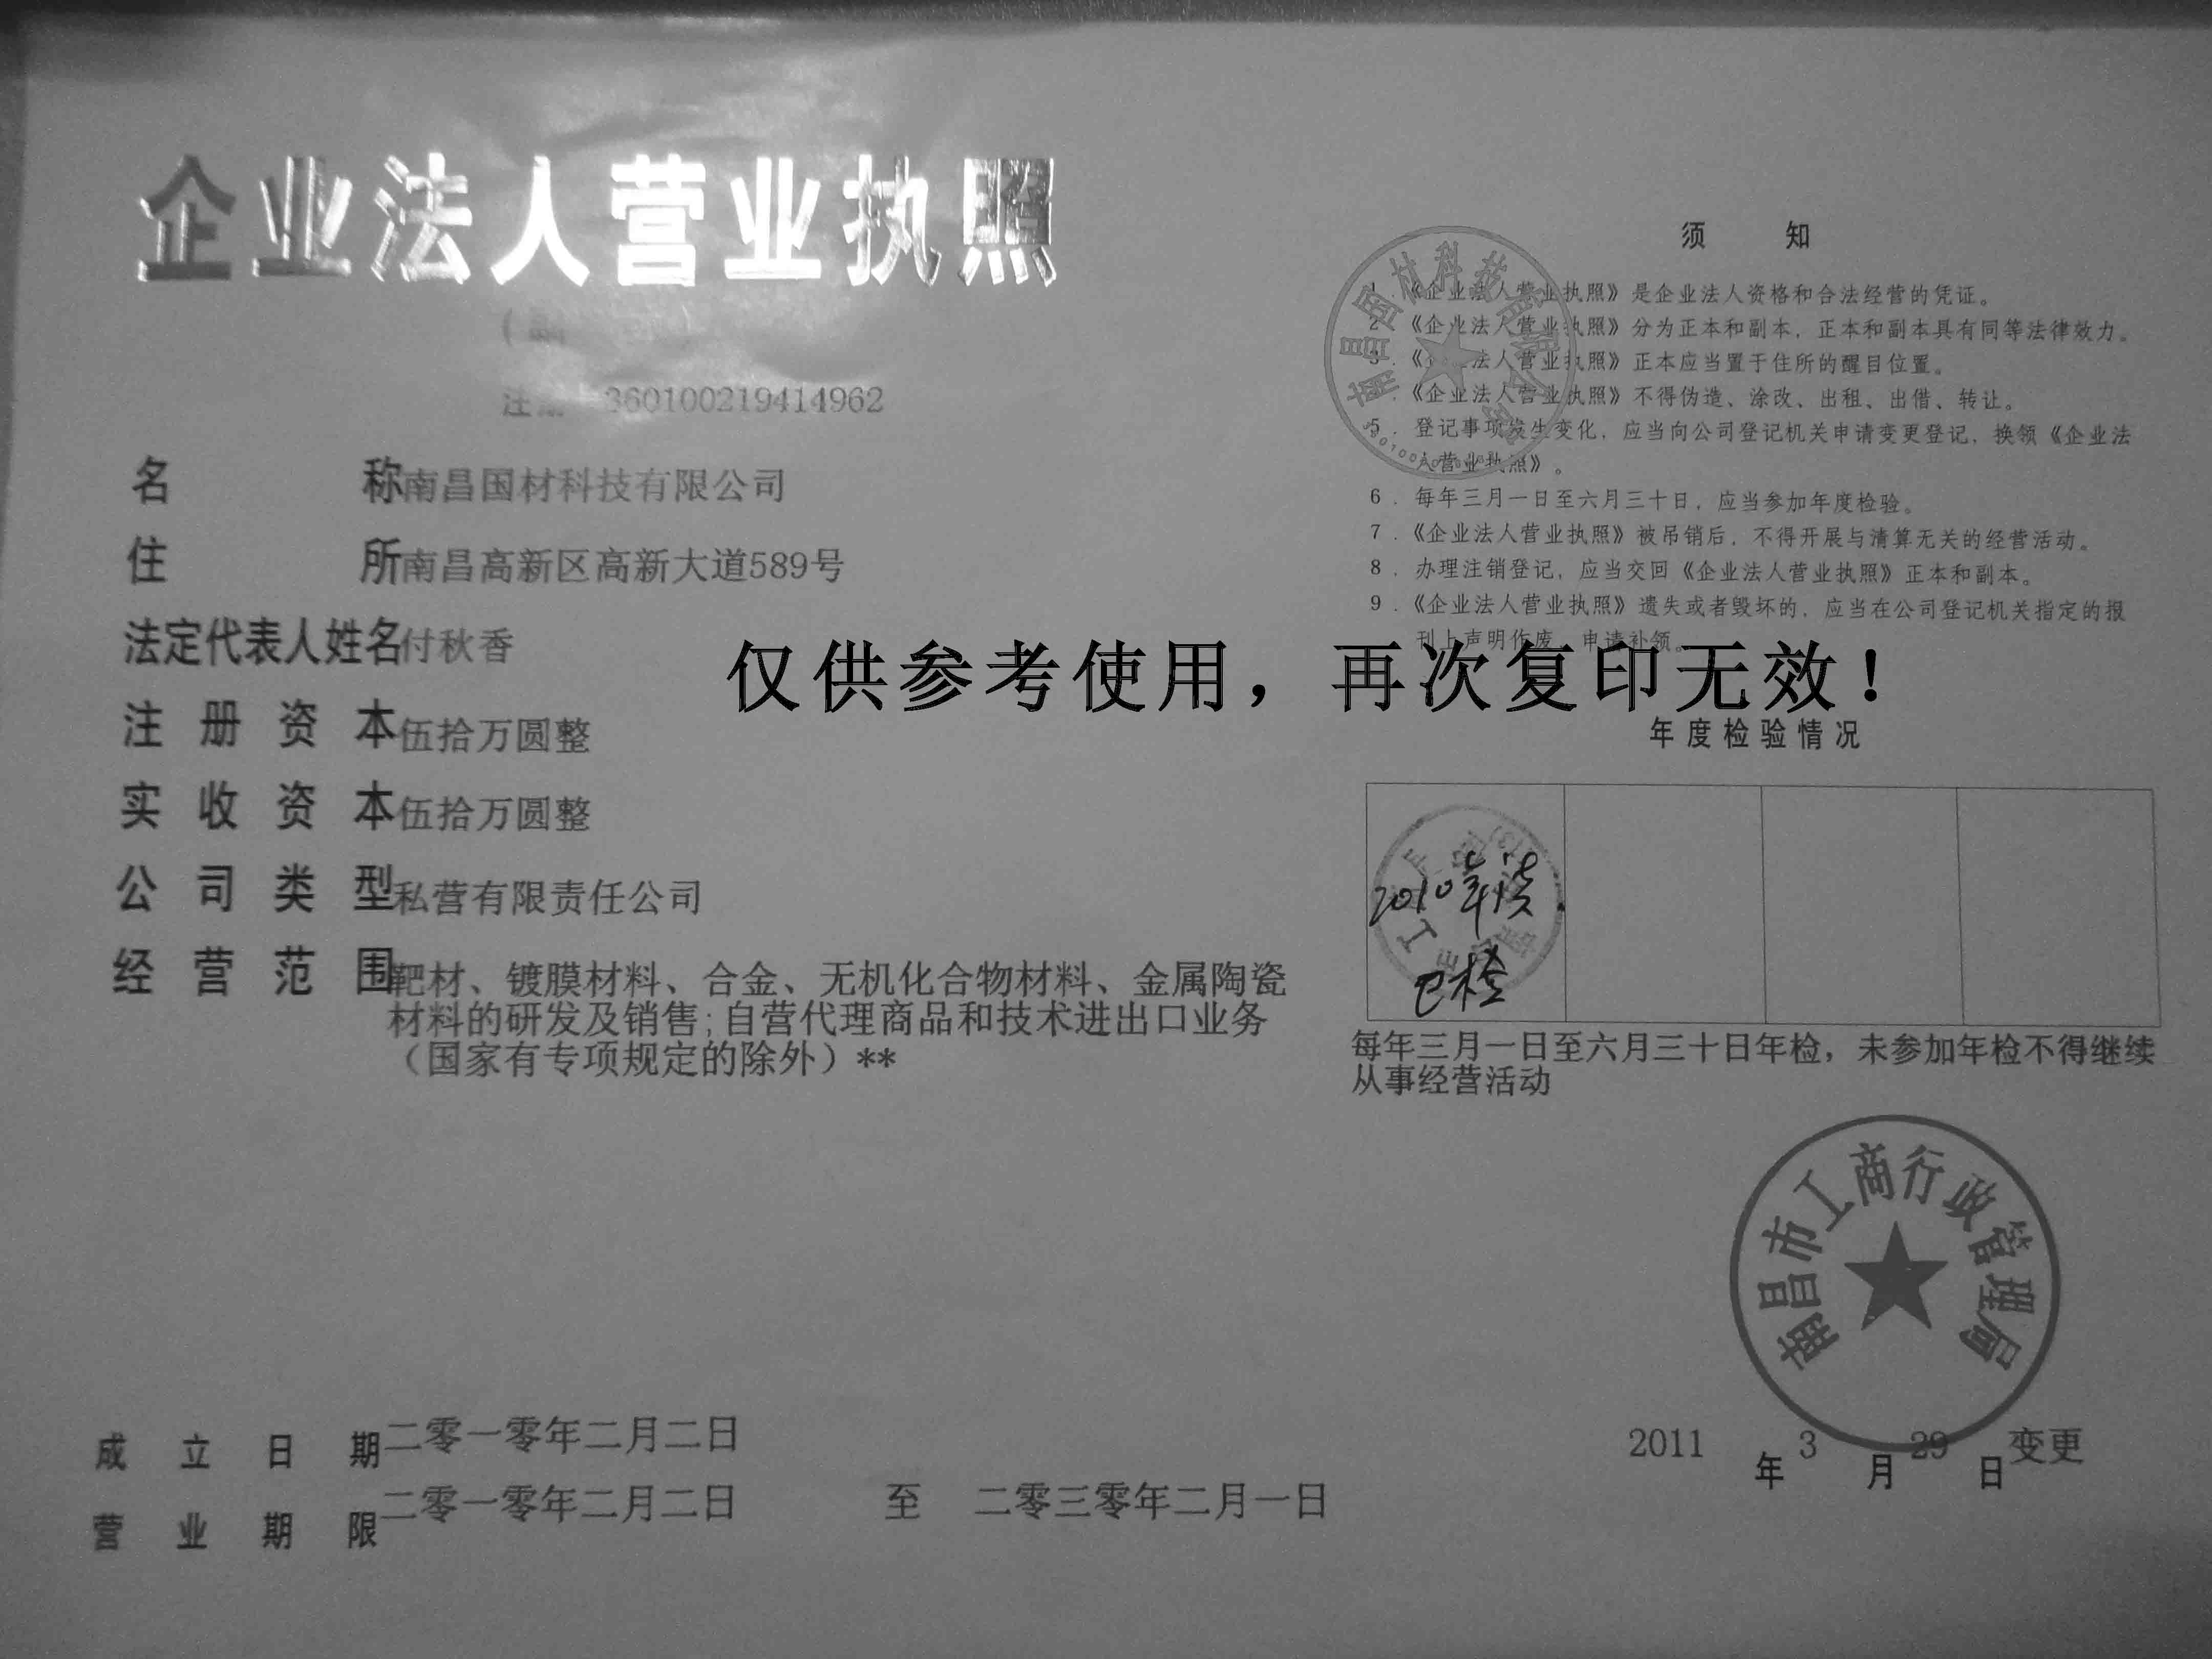 企业法人营业执照
(副
注册 360100219414962
名称南昌国材科技有限公司
住所南昌高新区高新大道589号
法定代表人姓名付秋香
注册资本伍拾万圆整
实收资本伍拾万圆整
公司类型私营有限责任公司
经营范围靶材、镀膜材料、合金、无机化合物材料、金属陶瓷
材料的研发及销售;自营代理商品和技术进出口业务
（国家有专项规定的除外）**
成立日期二零一零年二月二日
营业期限二零一零年二月二日 至 二零三零年二月一日
仅供参考使用，再次复印无效！
须知
1．《企业法人营业执照》是企业法人资格和合法经营的凭证。
2．《企业法人营业执照》分为正本和副本，正本和副本具有同等法律效力。
3．《企业法人营业执照》正本应当置于住所的醒目位置。
．《企业法人营业执照》不得伪造、涂改、出租、出借、转让。
5．登记事项发生变化，应当向公司登记机关申请变更登记，换领《企业法
人营业执照》。
6．每年三月一日至六月三十日，应当参加年度检验。
7．《企业法人营业执照》被吊销后，不得开展与清算无关的经营活动。
8．办理注销登记，应当交回《企业法人营业执照》正本和副本。
9．《企业法人营业执照》遗失或者毁坏的，应当在公司登记机关指定的报
刊上声明作废，申请补领。
南昌国材科技有限公司
年度检验情况
2010年
已检
每年三月一日至六月三十日年检，未参加年检不得继续
从事经营活动
南昌市工商行政管理局
2011年3月29日变更